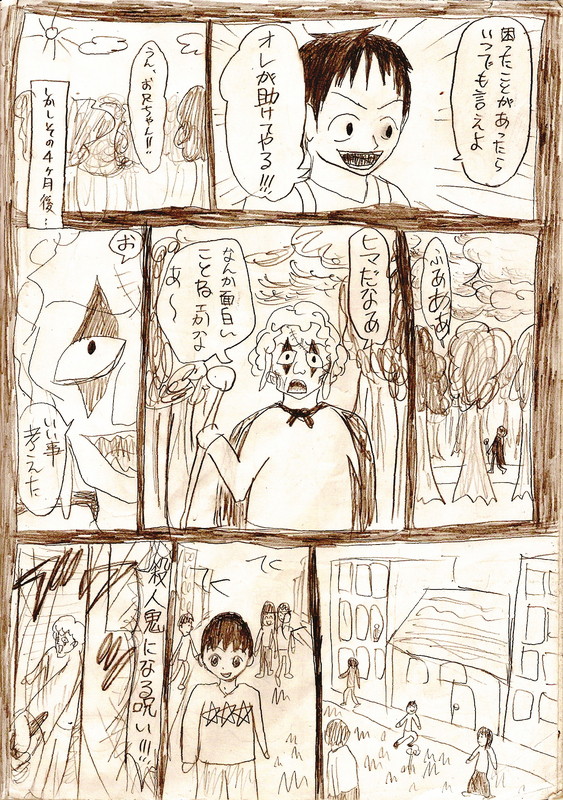 困ったことがあったら
いつでも言えよ
オレが助けてやる!!!
うん、お兄ちゃん!!
しかしその4ヶ月後…
ふあああ
ヒマだなあ
なんか面白い
ことねェかなな
あ〜
お
いい事
考えた
てく
てく
殺人鬼になる呪い!!!